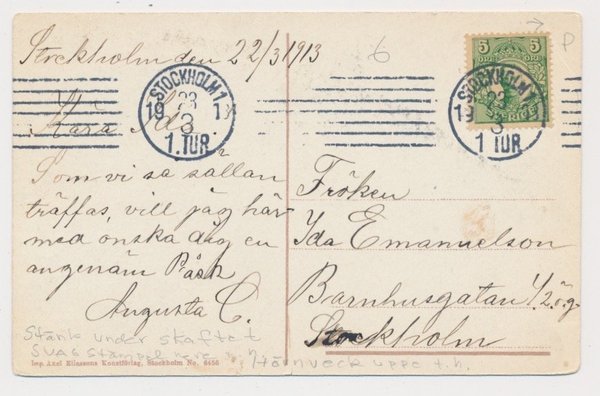 Stockholm den 22/3 1913
6
P
5 5
ÖRE ÖRE
STOCKHOLM 1
19 23 1
3
1. TUR
STOCKHOLM 1
19 23
3
1 TUR
Kära Ida.
Som vi så sällan
träffas, vill jag här
med önska dig en
angenäm Påsk
Augusta C.
Fröken
Ida Emanuelson
Barnhusgatan 1/2 ö.g
Stockholm
Stänk under skaftet
SVAG Stämpel
Hörnveck uppe t.h.
Imp. Axel Eliassons Konstförlag, Stockholm No. 6456